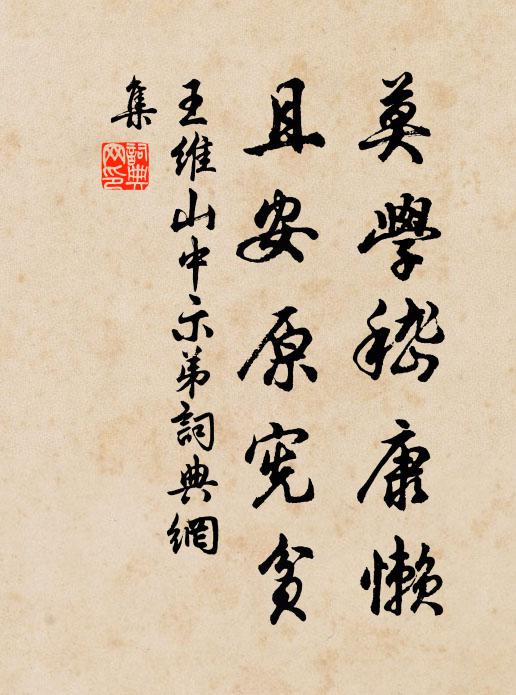 莫學嵇康懶
且安原憲貧
王維山中示弟詞典網
集
詞典網印